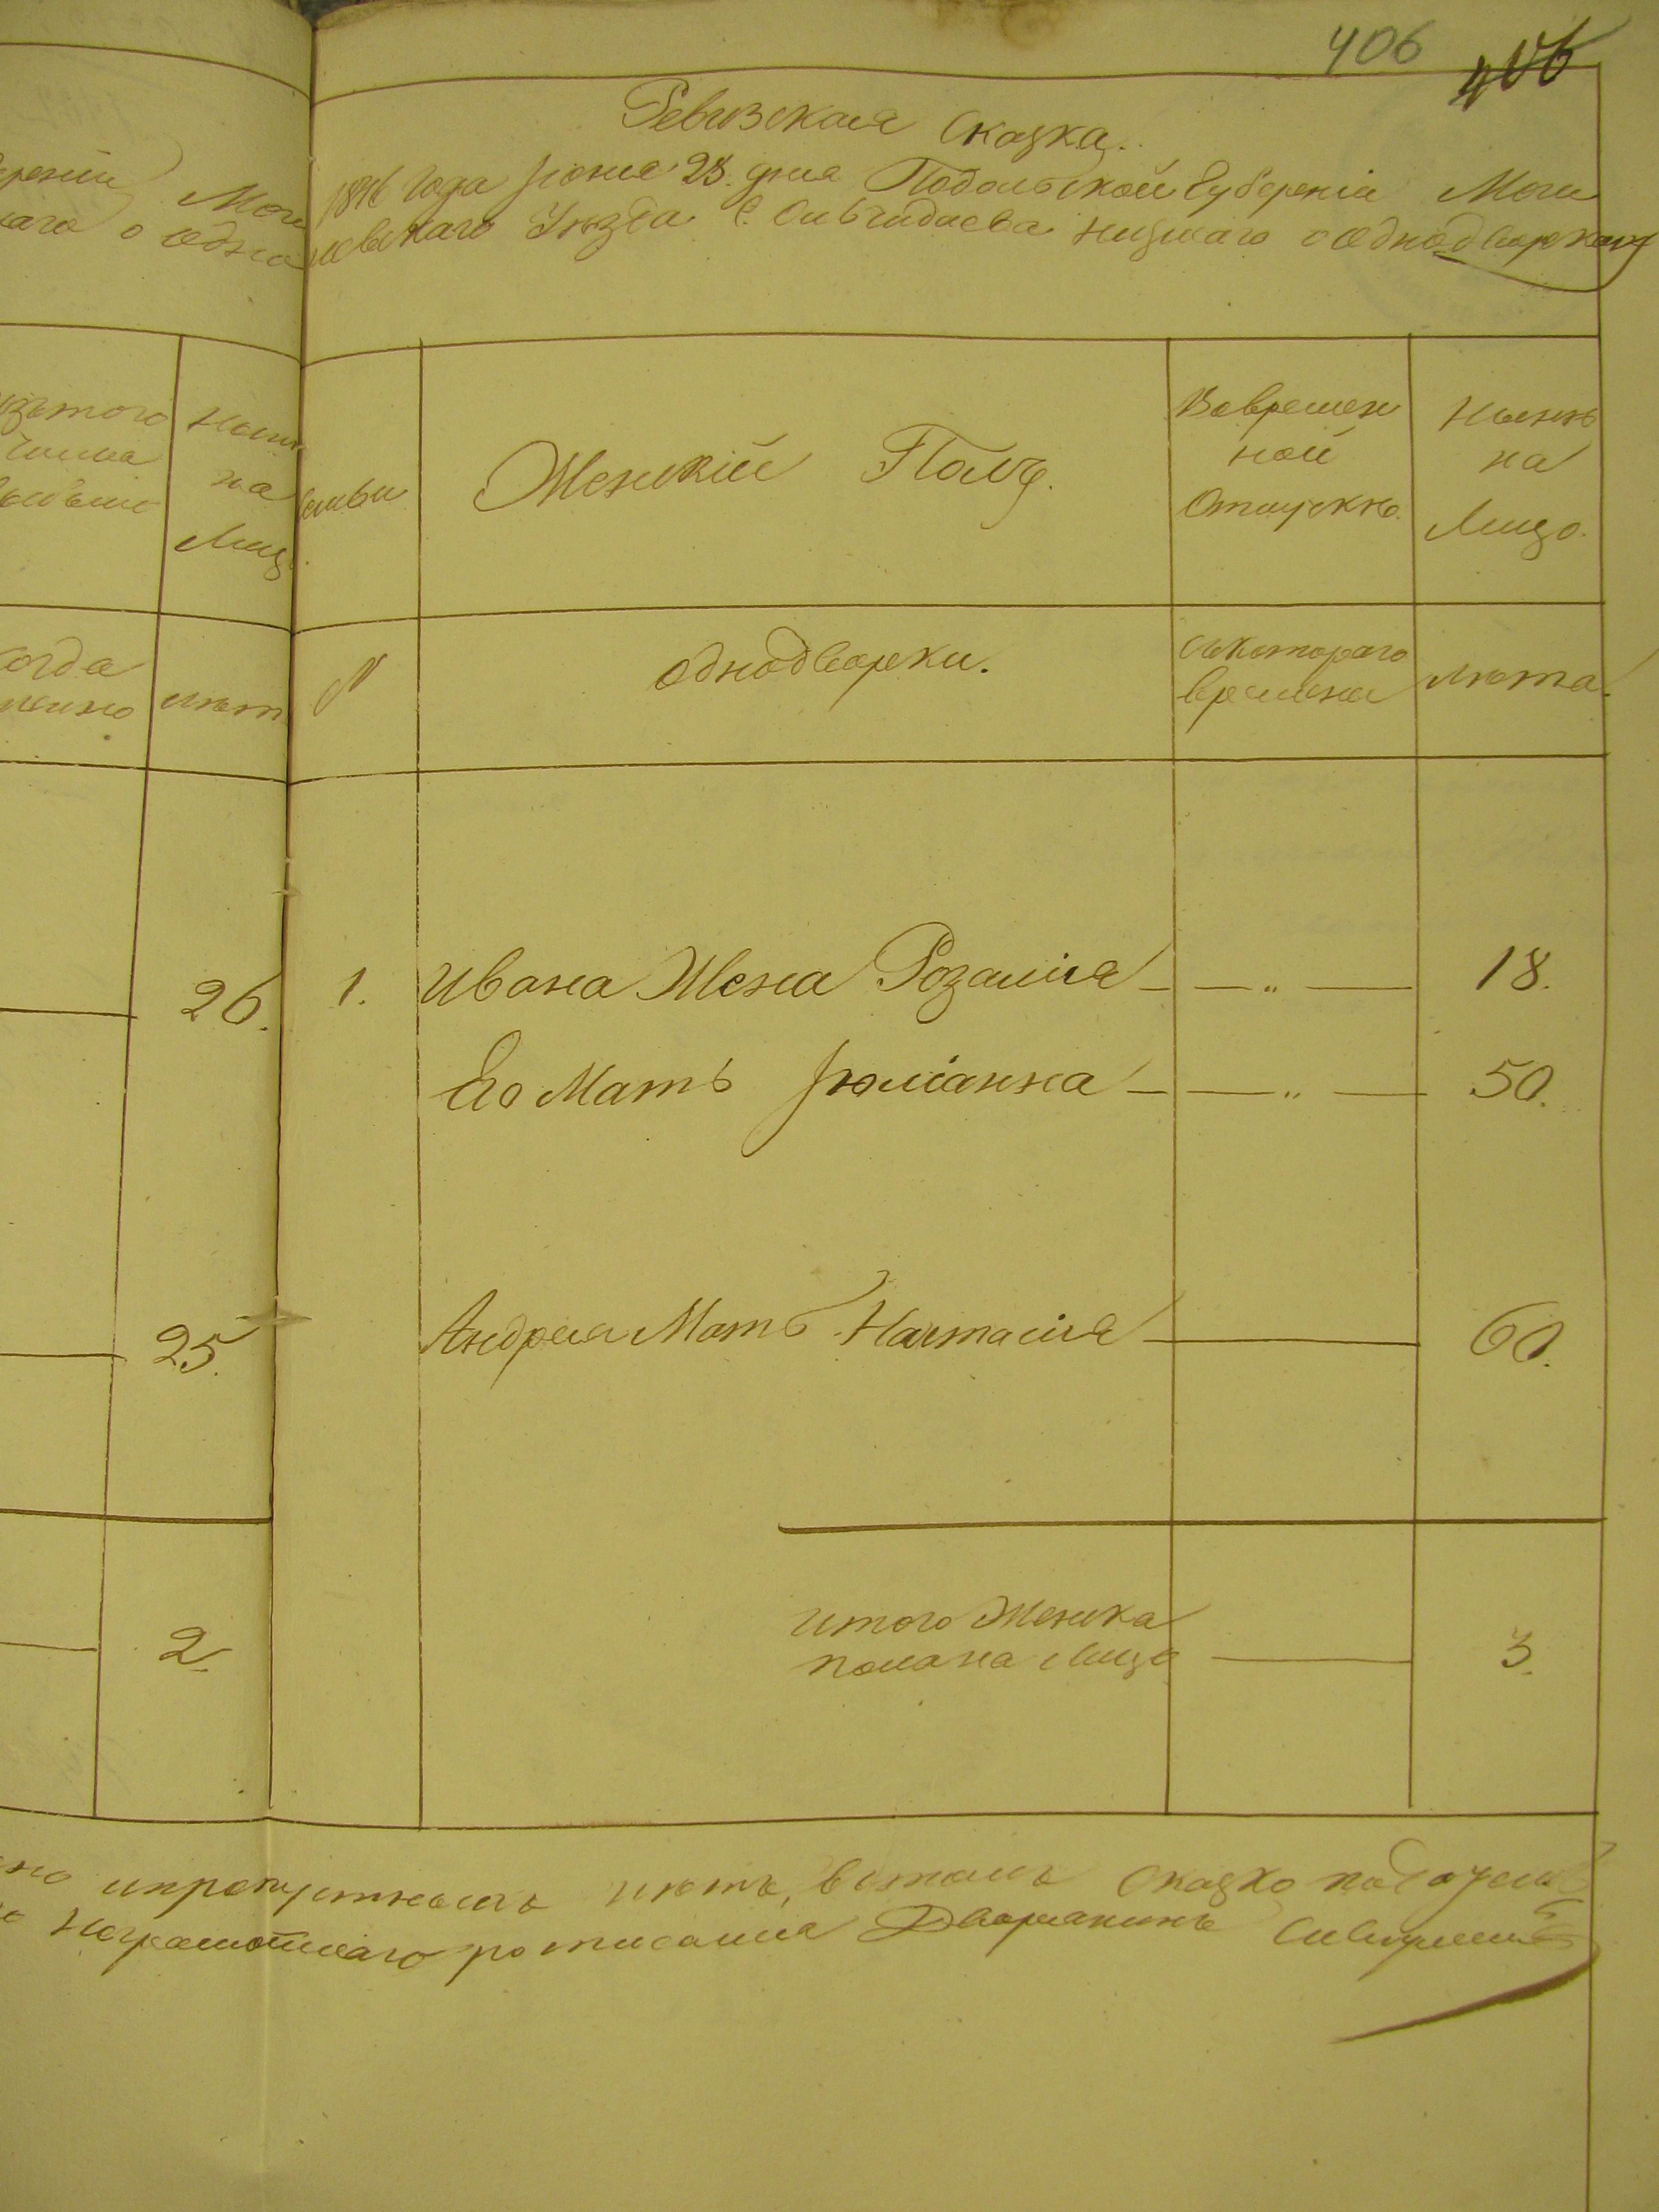 406 406
Ревизская Сказка.
года Іюня 28. дня Подольской Губерніи Моги
левскаго Уѣзда С. нижнаго о однодворкахъ
Мог
наго о одно
Нынѣ
на
Лицо
семьи
Женскій Полъ.
Вовремен
ной
Отлучкѣ.
Нынѣ
на
Лицо.
когда
лѣт
N
однодворки.
Съкотораго
времени
лѣта.
26. 1. Ивана Жена Розалія — — „ — 18.
Его Мать Юліанна — — „ — 50.
25. Андрея Мать Настасія — 60.
2. итого Женска
пола на Лицо — 3.
ипропускныхъ нѣтъ, Сказко
Неграмотнаго росписался Дворянинъ